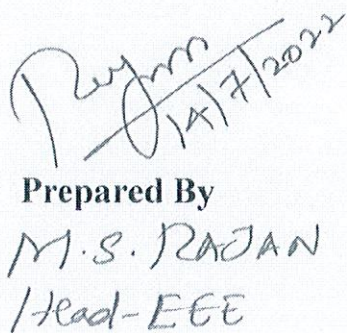 14/7/2022
Prepared By
M.S. RAJAN
Head-EEE